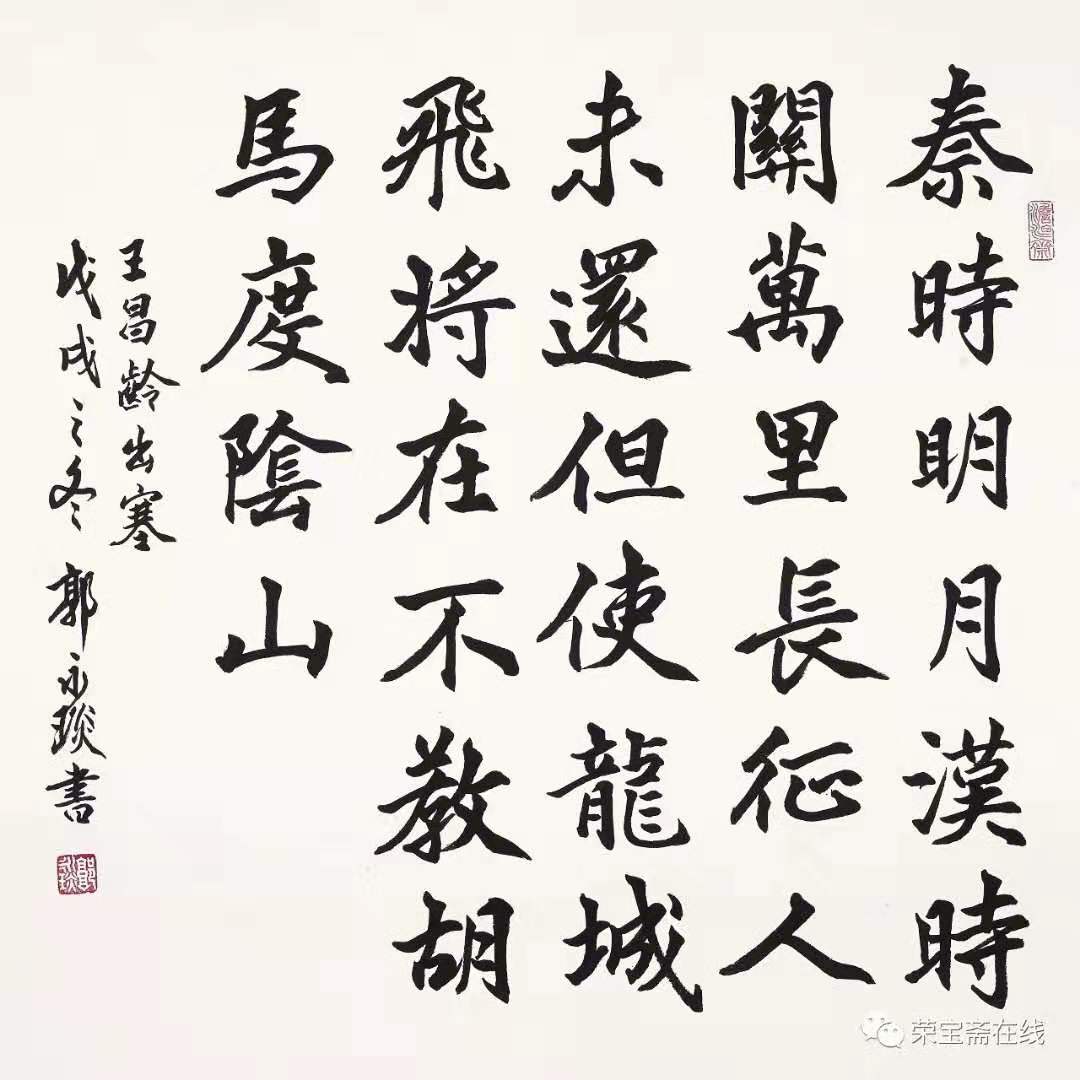 秦時明月漢時
關萬里長征人
未還但使龍城
飛将在不教胡
馬度陰山
王昌齡出塞
戊戌之冬 郭永琰書
荣宝斋在线